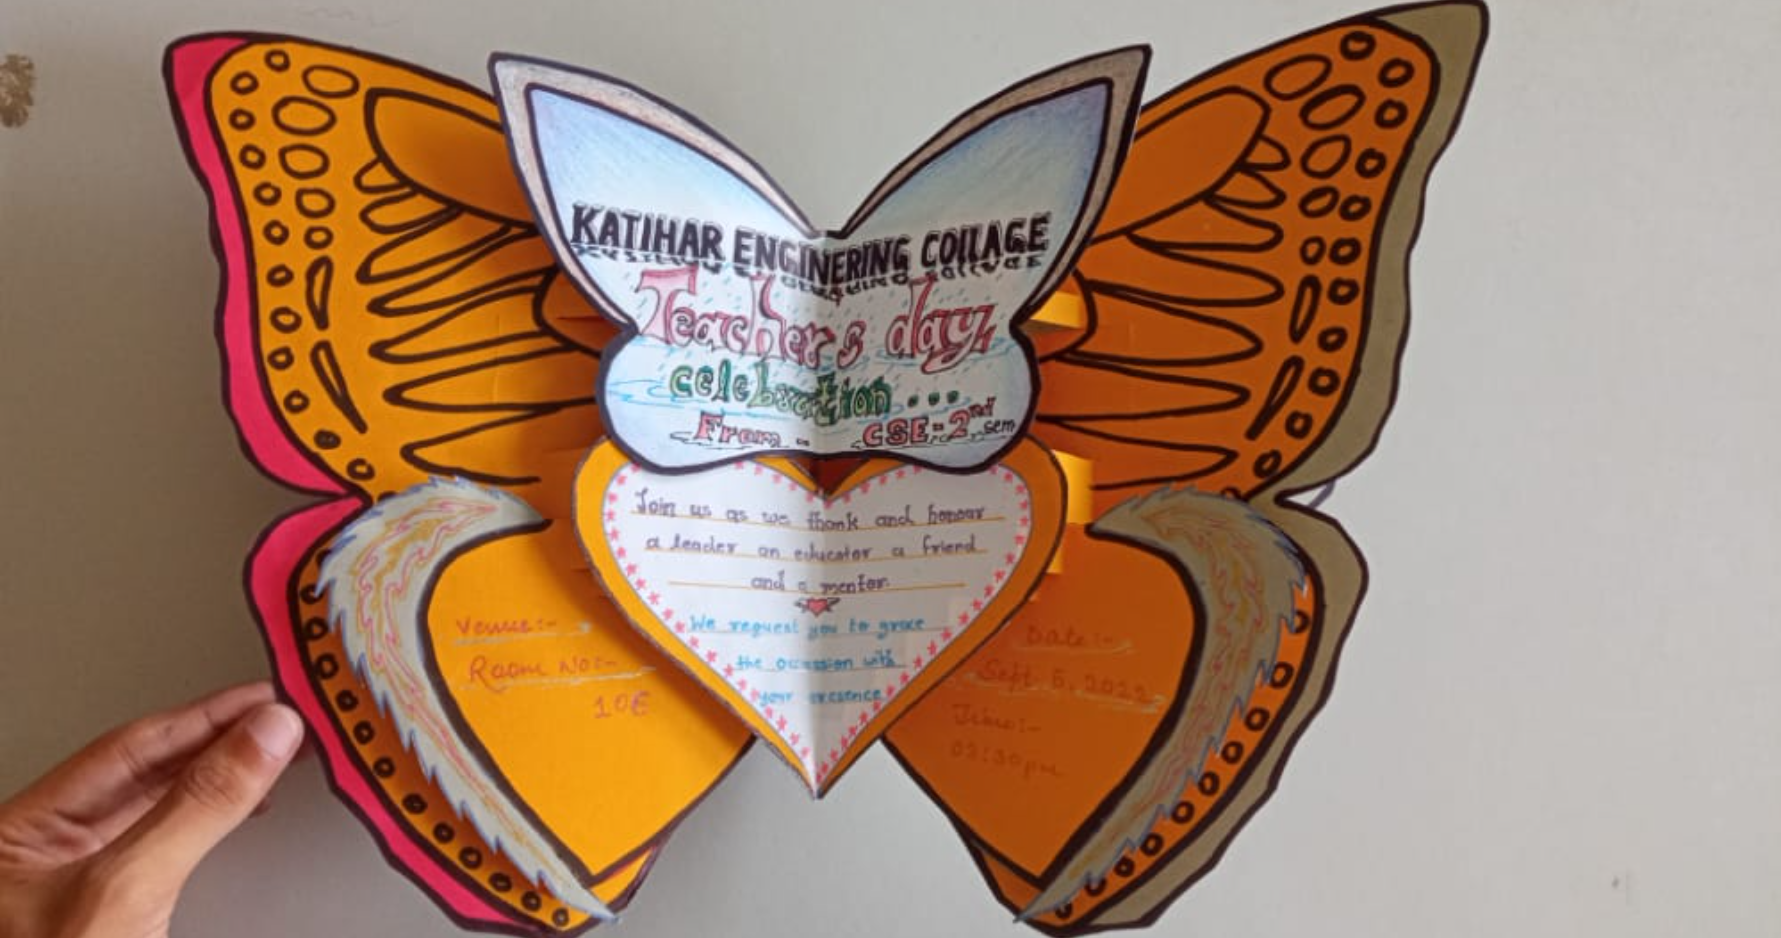 KATIHAR ENGINERING COLLAGE
Teacher's day
celebration ...
From - CSE-2nd sem
Join us as we thank and honour
a leader an educator a friend
and a mentor
We request you to grace
the occassion with
your presence
Venue:-
Room No:-
Date:-
Sept 5, 2022
Time:-
03:30pm